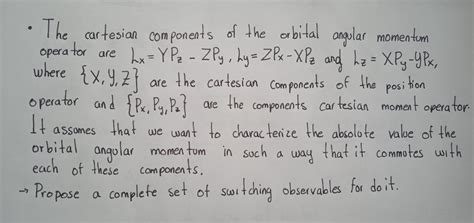 • The cartesian components of the orbital angular momentum
operator are Lx = YPz - ZPy, Ly = ZPx - XPz and Lz = XPy - YPx,
where {X, Y, Z} are the cartesian components of the position
operator and {Px, Py, Pz} are the components cartesian moment operator.
It assomes that we want to characterize the absolute value of the
orbital angular momentum in such a way that it commotes with
each of these components.
→ Propose a complete set of switching observables for do it.